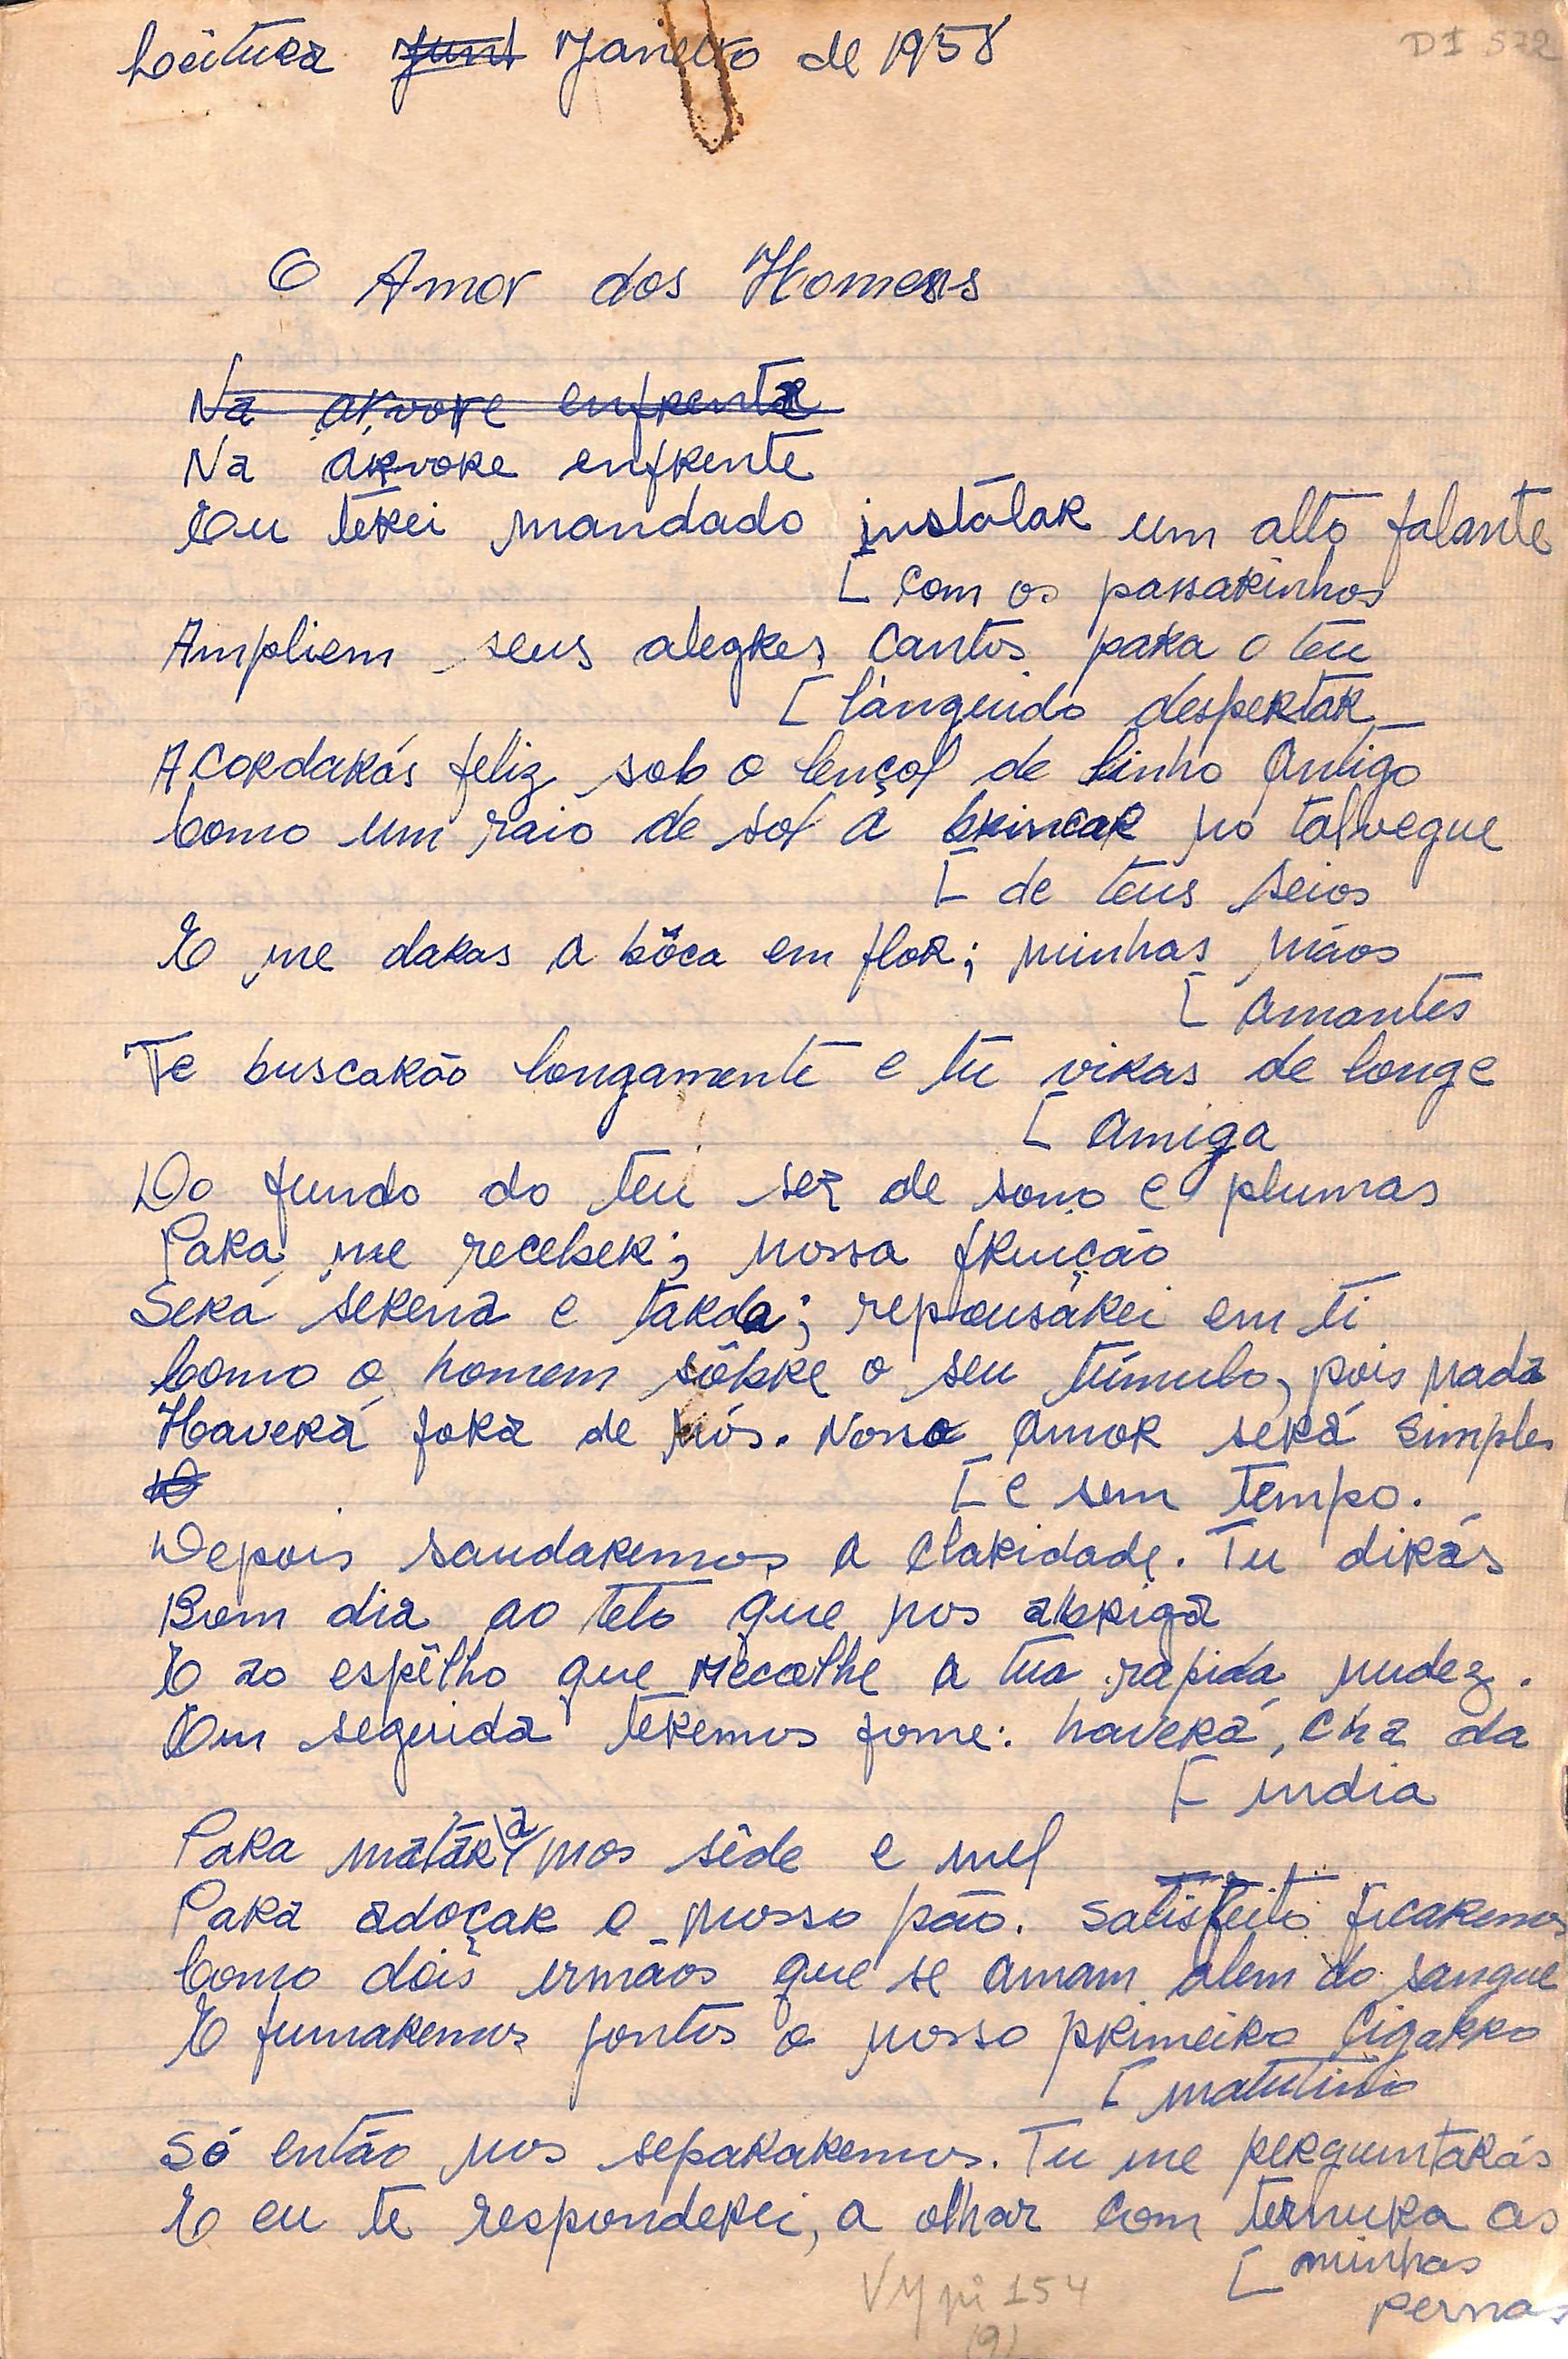 Leitura Junt Janeiro de 1958
D1 572
O Amor dos Homens
Na arvore enfrente
Na árvore enfrente
Eu terei mandado instalar um alto falante
[ com os passarinhos
Ampliem seus alegres cantos para o teu
[ lânguido despertar
Acordarás feliz sob o lençol de linho antigo
Como um raio de sol a brincar no talvegue
[ de teus seios
E me daras a bôca em flor; minhas mãos
[ amantes
Te buscarão longamente e tu viras de longe
[ amiga
Do fundo do teu ser de sono e plumas
Para me receber; nossa fruição
Será serena e tarda; repousarei em ti
Como o homem sôbre o seu túmulo, pois nada
Haverá fora de nós. Nosso amor será simples
[ e sem tempo.
Depois saudaremos a claridade. Tu dirás
Bom dia ao teto que nos abriga
E ao espêlho que recolhe a tua rapida nudez.
Em seguida teremos fome: haverá cha da
[ india
Para matarmos a sêde e mel
Para adoçar o nosso pão. Satisfeito ficaremos
Como dois irmãos que se amam alem do sangue
E fumaremos jontos o nosso primeiro cigarro
[ matutino
Só então nos separaremos. Tu me perguntarás
E eu te responderei, a olhar com ternura as
[ minhas
pernas
VM pi 154
(9)